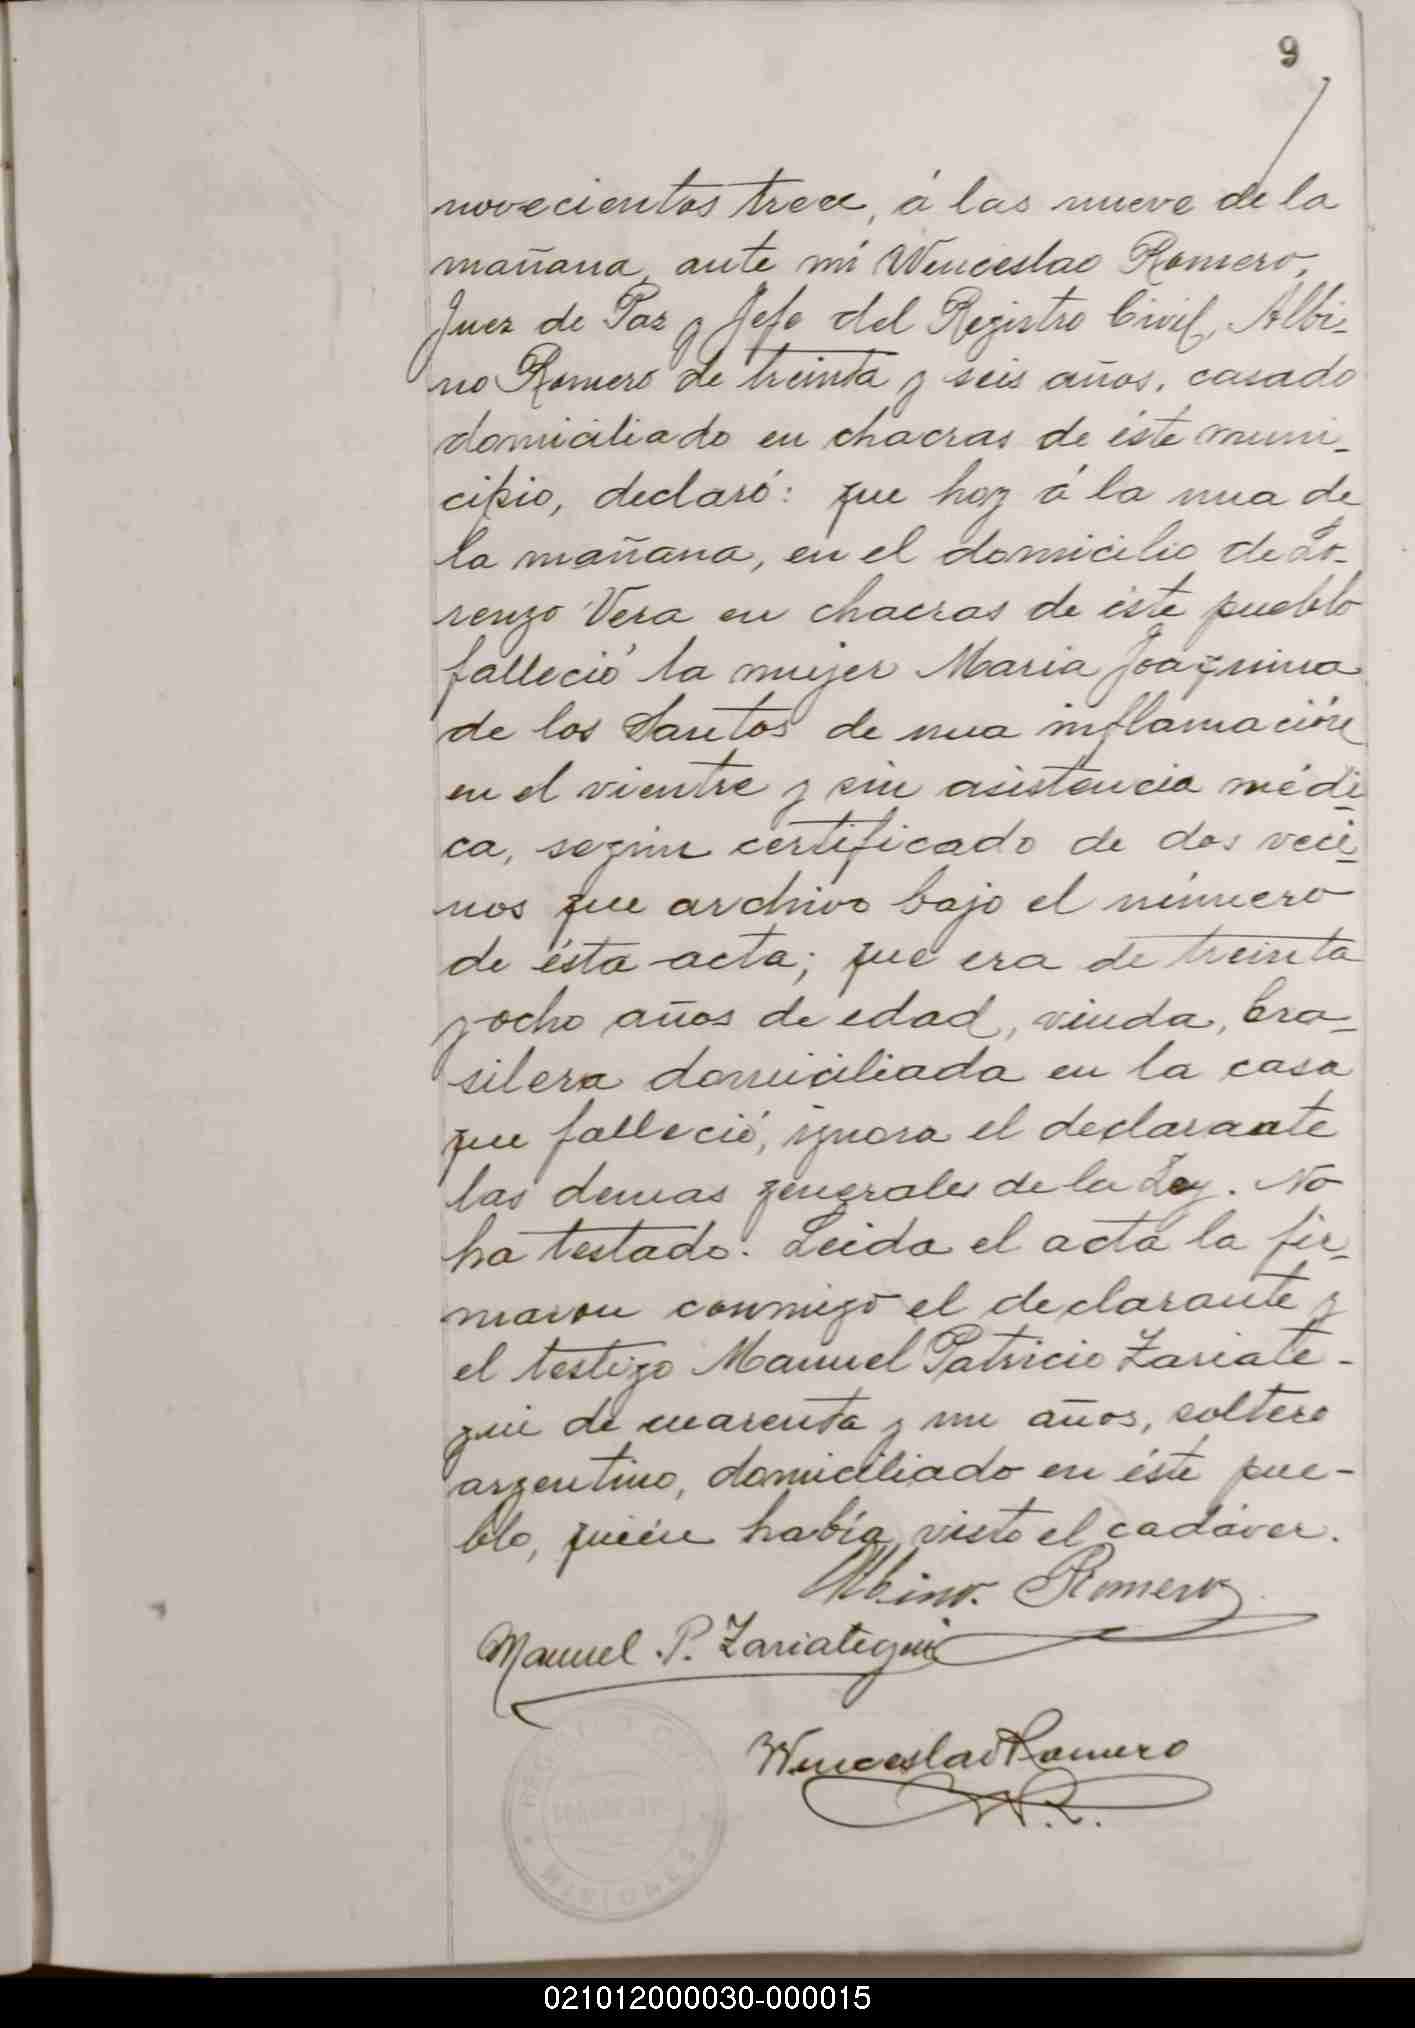 9
novecientos trece, á las nueve de la
mañana, ante mí Wenceslao Romero,
Juez de Paz y Jefe del Registro Civil, Albi-
no Romero de treinta y seis años, casado
domiciliado en chacras de éste muni-
cipio, declaró: que hoy á la una de
la mañana, en el domicilio de Lo-
renzo Vera en chacras de éste pueblo
falleció la mujer Maria Joaquina
de los Santos de una inflamación
en el vientre y sin asistencia médi-
ca, según certificado de dos veci-
nos que archivo bajo el número
de ésta acta; que era de treinta
y ocho años de edad, viuda, bra-
silera domiciliada en la casa
que falleció, ignora el declarante
las demas generales de la Ley. No
ha testado. Leida el acta la fir-
maron conmigo el declarante y
el testigo Manuel Patricio Zariate-
gui de cuarenta y un años, soltero
argentino, domiciliado en éste pue-
blo, quién había visto el cadáver.
Albino. Romero
Manuel. P. Zariategui
Wenceslao Romero
W. R.
MISIONES
021012000030-000015